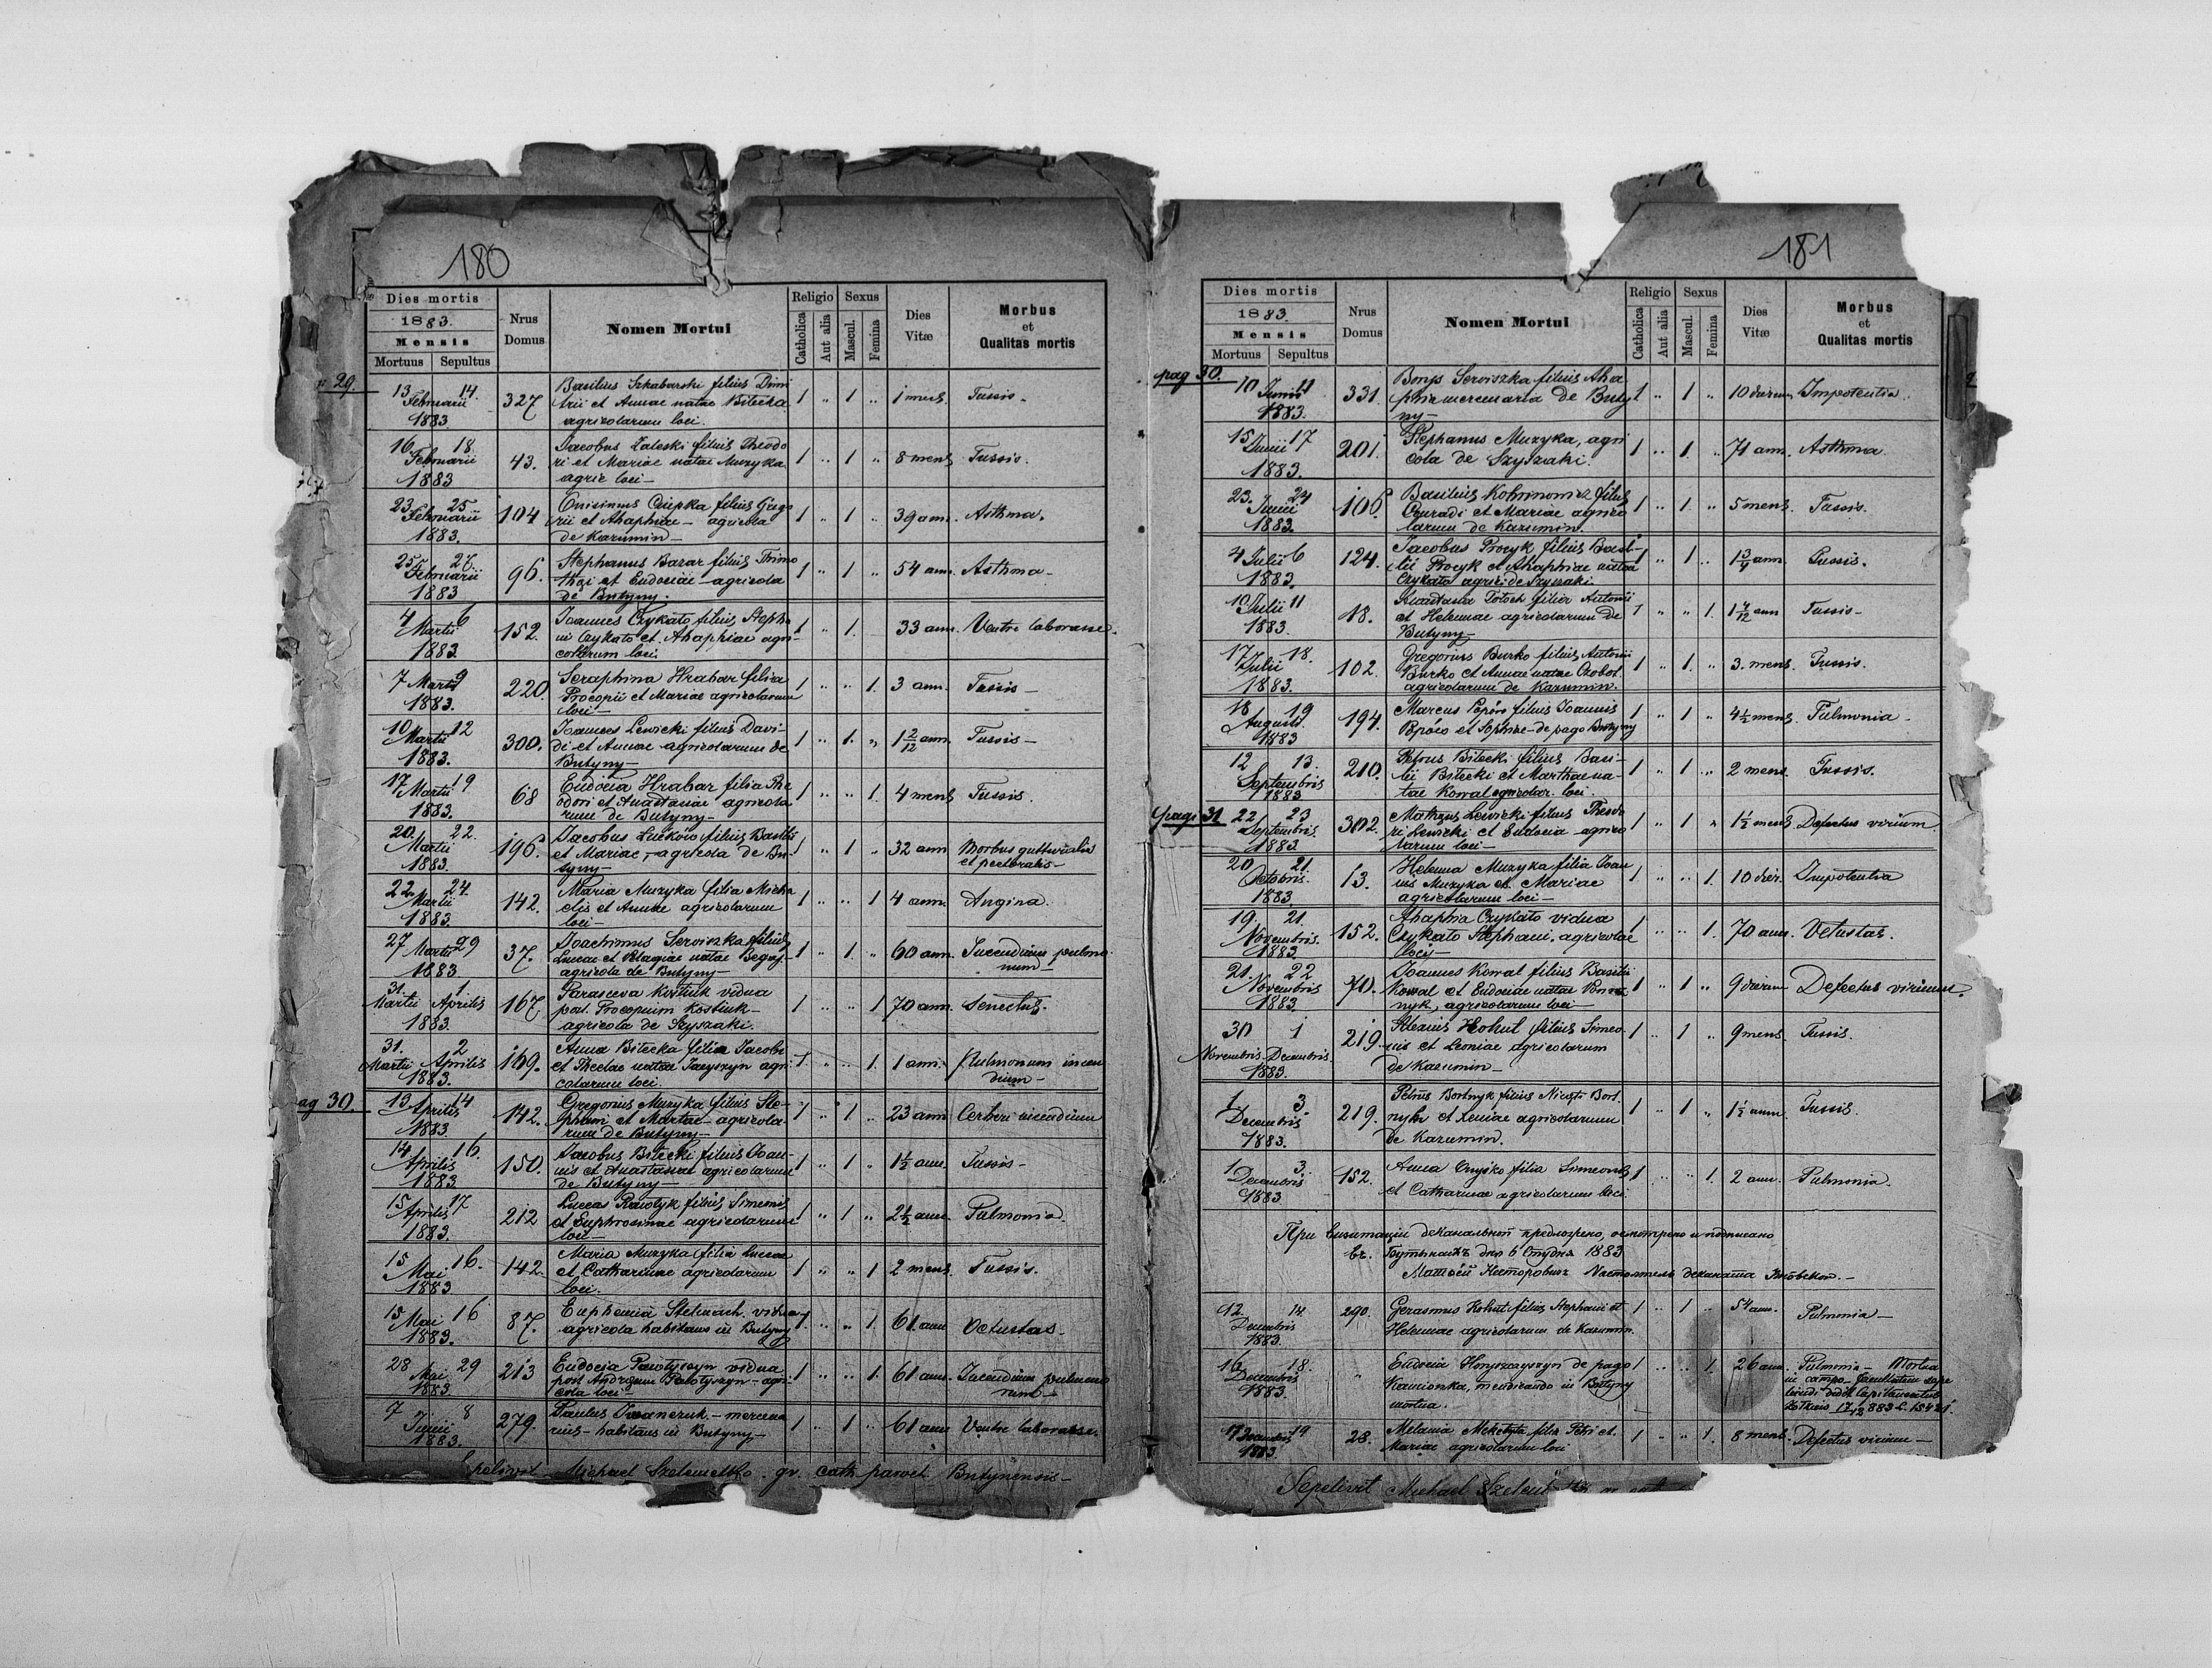 180
Dies mortis
1883.
Mensis
Mortuus Sepultus
Nrus Domus
Nomen Mortui
Religio
Catholica
Aut alia
Sexus
Mascul.
Femina
Dies Vitæ
Morbus et Qualitas mortis
29.
13 14. 327 Basilius Szkabarski filius Dimi 1 „ 1 „ 1 mens. Tussis.
Februarii trii et Annae natae Bilecka
1883 agricolarum loci.
16 18. 43. Jacobus Zaleski filius Theodo 1 „ 1 „ 8 mens. Tussis.
Februarii ri et Mariae natae Muzyka
1883 agric loci
23 25 104 Onisimus filius Greg 1 „ 1 „ 39 ann. Asthma.
Februarii rii et Ahaphiae agricola
1883. de Kazumin
25 27. 96. Stephanus Bazar filius Timo 1 „ 1 „ 54 ann. Asthma
Februarii thei et Eudociae agricola
1883 de Butyny.
4 6 152. Joannes Czykało filius Stepha 1 „ 1. 33 ann. Ventre laborasse.
Martii ni Czykało et Ahaphiae agri-
1883. loci
7 Martii 9 220. Seraphina Hrabar filia 1 „ „ 1. 3 ann. Tussis
1883. Procopii et Mariae agricolarum
loci
10 12 300. Joannes Lewicki filius Davi- 1 „ 1. „ 1 2/12 ann. Tussis
Martii di et Annae agricolarum de
1883. Butyny
17 19 68 Eudocia Hrabar filia The 1 „ „ 1. 4 mens. Tussis.
Martii odori et Anastasiae agricola
1883. rum de Butyny
20. 22. 196. Jacobus filius Basilii 1 „ 1 „ 32 ann Morbus gutturalis
Martii et Mariae, agricola de Bu- et pectoralis
1883. tyny
22 24. 142. Maria Muzyka filia Micha 1 „ „ 1 4 ann. Angina.
Martii elis et Annae agricolarum
1883. loci
27 Martii 29 37. Joachimus Serviszka filius 1 „ 1. „ 60 ann. Incendium pulmo
1883 Lucae et Pelagiae natae num
agricola de Butyny
31. 1. 167 Parasceva Kostiuk vidua 1 „ „ 1 70 ann. Senectus.
Martii Aprilis post Procopium Kostiuk
1883. agricola de Szyszaki.
31. 2 169. Anna Bilecka filia Jacobi 1 „ „ 1. 1 ann. Pulmonum incen
Martii Aprilis et Theclae natae agri- dium
1883. colarum loci.
ag 30.
13 14 142. Gregorius Muzyka filius Ste- 1 „ 1 „ 23 ann.
Aprilis phani et Martae agricola
1883. rum de Butyny
14 16. 150. Jacobus Bilecki filius Joan- 1 „ 1 „ 1½ ann. Tussis
Aprilis nis et Anastasiae agricolarum
1883 de Butyny
15 17 212 Lucas filius Simeonis 1 „ 1 „ 2½ ann. Pulmonia
Aprilis et Euphrosinae agricolarum
1883. loci
15 16. 142. Maria Muzyka filia Lucae 1 „ „ 1 2 mens. Tussis.
Mai et Catharinae agricolarum
1883 loci.
15 16 87. Euphemia Stelmach vidua 1 „ „ 1. 61 ann Vetustas
Mai agricola habitans in Butyny
1883.
28 29 213 Eudocia vidua 1 „ „ 1. 61 ann. Incendium pulmo
Mai post Andream agri- num
1883. cola loci
7 8 279. Paulus Iwanczuk mercena 1 „ 1 „ 61 ann Ventre laborasse.
Junii rius habitans in Butyny
1883.
Sepelivit Michael gr. cath. paroch. Butynensis
181
Dies mortis
1883.
Mensis
Mortuus Sepultus
Nrus Domus
Nomen Mortui
Religio
Catholica
Aut alia
Sexus
Mascul.
Femina
Dies Vitæ
Morbus et Qualitas mortis
pag 30.
10 Junii 11 331. Borys Serviszka filius Aha 1 „ 1 „ 10 dierum Impotentia.
1883. phiae mercenaria de Buty
ny
15 Junii 17 201. Stephanus Muzyka, agri 1 „ 1. „ 71 ann. Asthma
1883. cola de Szyszaki.
23. 24 106. Basilius filius 1 „ 1. „ 5 mens. Tussis.
Junii et Mariae agrico
1883. larum de Kazumin.
4 Julii 6 124. Jacobus Procyk filius Basi- 1 „ 1 „ 1 3/4 ann. Tussis.
1883. lii Procyk et Ahaphiae natae
Czykało agric. de Szyszaki
10 Julii 11 18. Anastasia filia Antonii 1 „ „ 1. ann Tussis
1883. et Helenae agricolarum de
Butyny
17 18. 102. Gregorius Burko filius Antonii 1 „ 1. „ 3. mens. Tussis.
Julii Burko et Annae natae
1883. agricolarum de Kazumin.
18 19 194. Marcus filius Joannis 1 „ 1 „ 4½ mens. Pulmonia
Augusti et Sophiae de pago Butyny
1883
12 13. 210. Petrus Bilecki filius Basi- 1 „ 1 „ 2 mens. Tussis.
Septembris lii Bilecki et Marthae na-
1883 tae Kowal agricolar. loci.
pagi 31
22 23 302. Lewicki filius Theodo 1 „ 1 „ 1½ mens. Defectus virium
Septembris ri Lewicki et Eudocia agrico
1883 larum loci
20 21. 13. Helena Muzyka filia Joan 1 „ „ 1. 10 dier. Impotentia
Octobris. nis Muzyka et Mariae
1883 agricolarum loci
19 21 152. Ahaphia Czykało vidua 1 „ „ 1. 70 ann. Vetustas.
Novembris. Czykało Stephani, agricolae
1883. loci
21. 22 70. Joannes Kowal filius Basilii 1 „ 1 „ 9 dierum Defectus virium.
Novembris Kowal et Eudociae natae
1883. agricolarum loci
30 1 219 Alexius Hohul filius Simeo- 1 „ 1 „ 9 mens. Tussis.
Novembris. Decembris. nis et agricolarum
1883. de Kazumin
1 3 219. Petrus Bortnyk filius Bort 1 „ 1 „ ann. Tussis.
Decembris nyk et agricolarum
1883. de Kazumin.
1 3. 152. Anna filia Simeonis 1 „ „ 1. 2 ann. Pulmonia.
Decembris et Catharinae agricolarum loci
1883
При визитаціи деканальной предложено, осмотрено и подписано
въ Бутынахъ дня 6 Студня 1883
12. 14 290. Gerasmus Hohul filius Stephani et 1 „ 1 „ 54 ann. Pulmonia
Decembris Helenae agricolarum de Kazumin.
1883.
16 18. „ Eudocia de pago 1 „ „ 1. 26 ann. Pulmonia Mortua
Decembris Kamionka, mendicando in Butyny in campo facultatem sepe
1883. mortua. liendi dedit
17 19 28. Melania filia Petri et 1 „ „ 1. 8 mens. Defectus virium
Decembris Mariae agricolarum loci
1883.
Sepelivit Michael